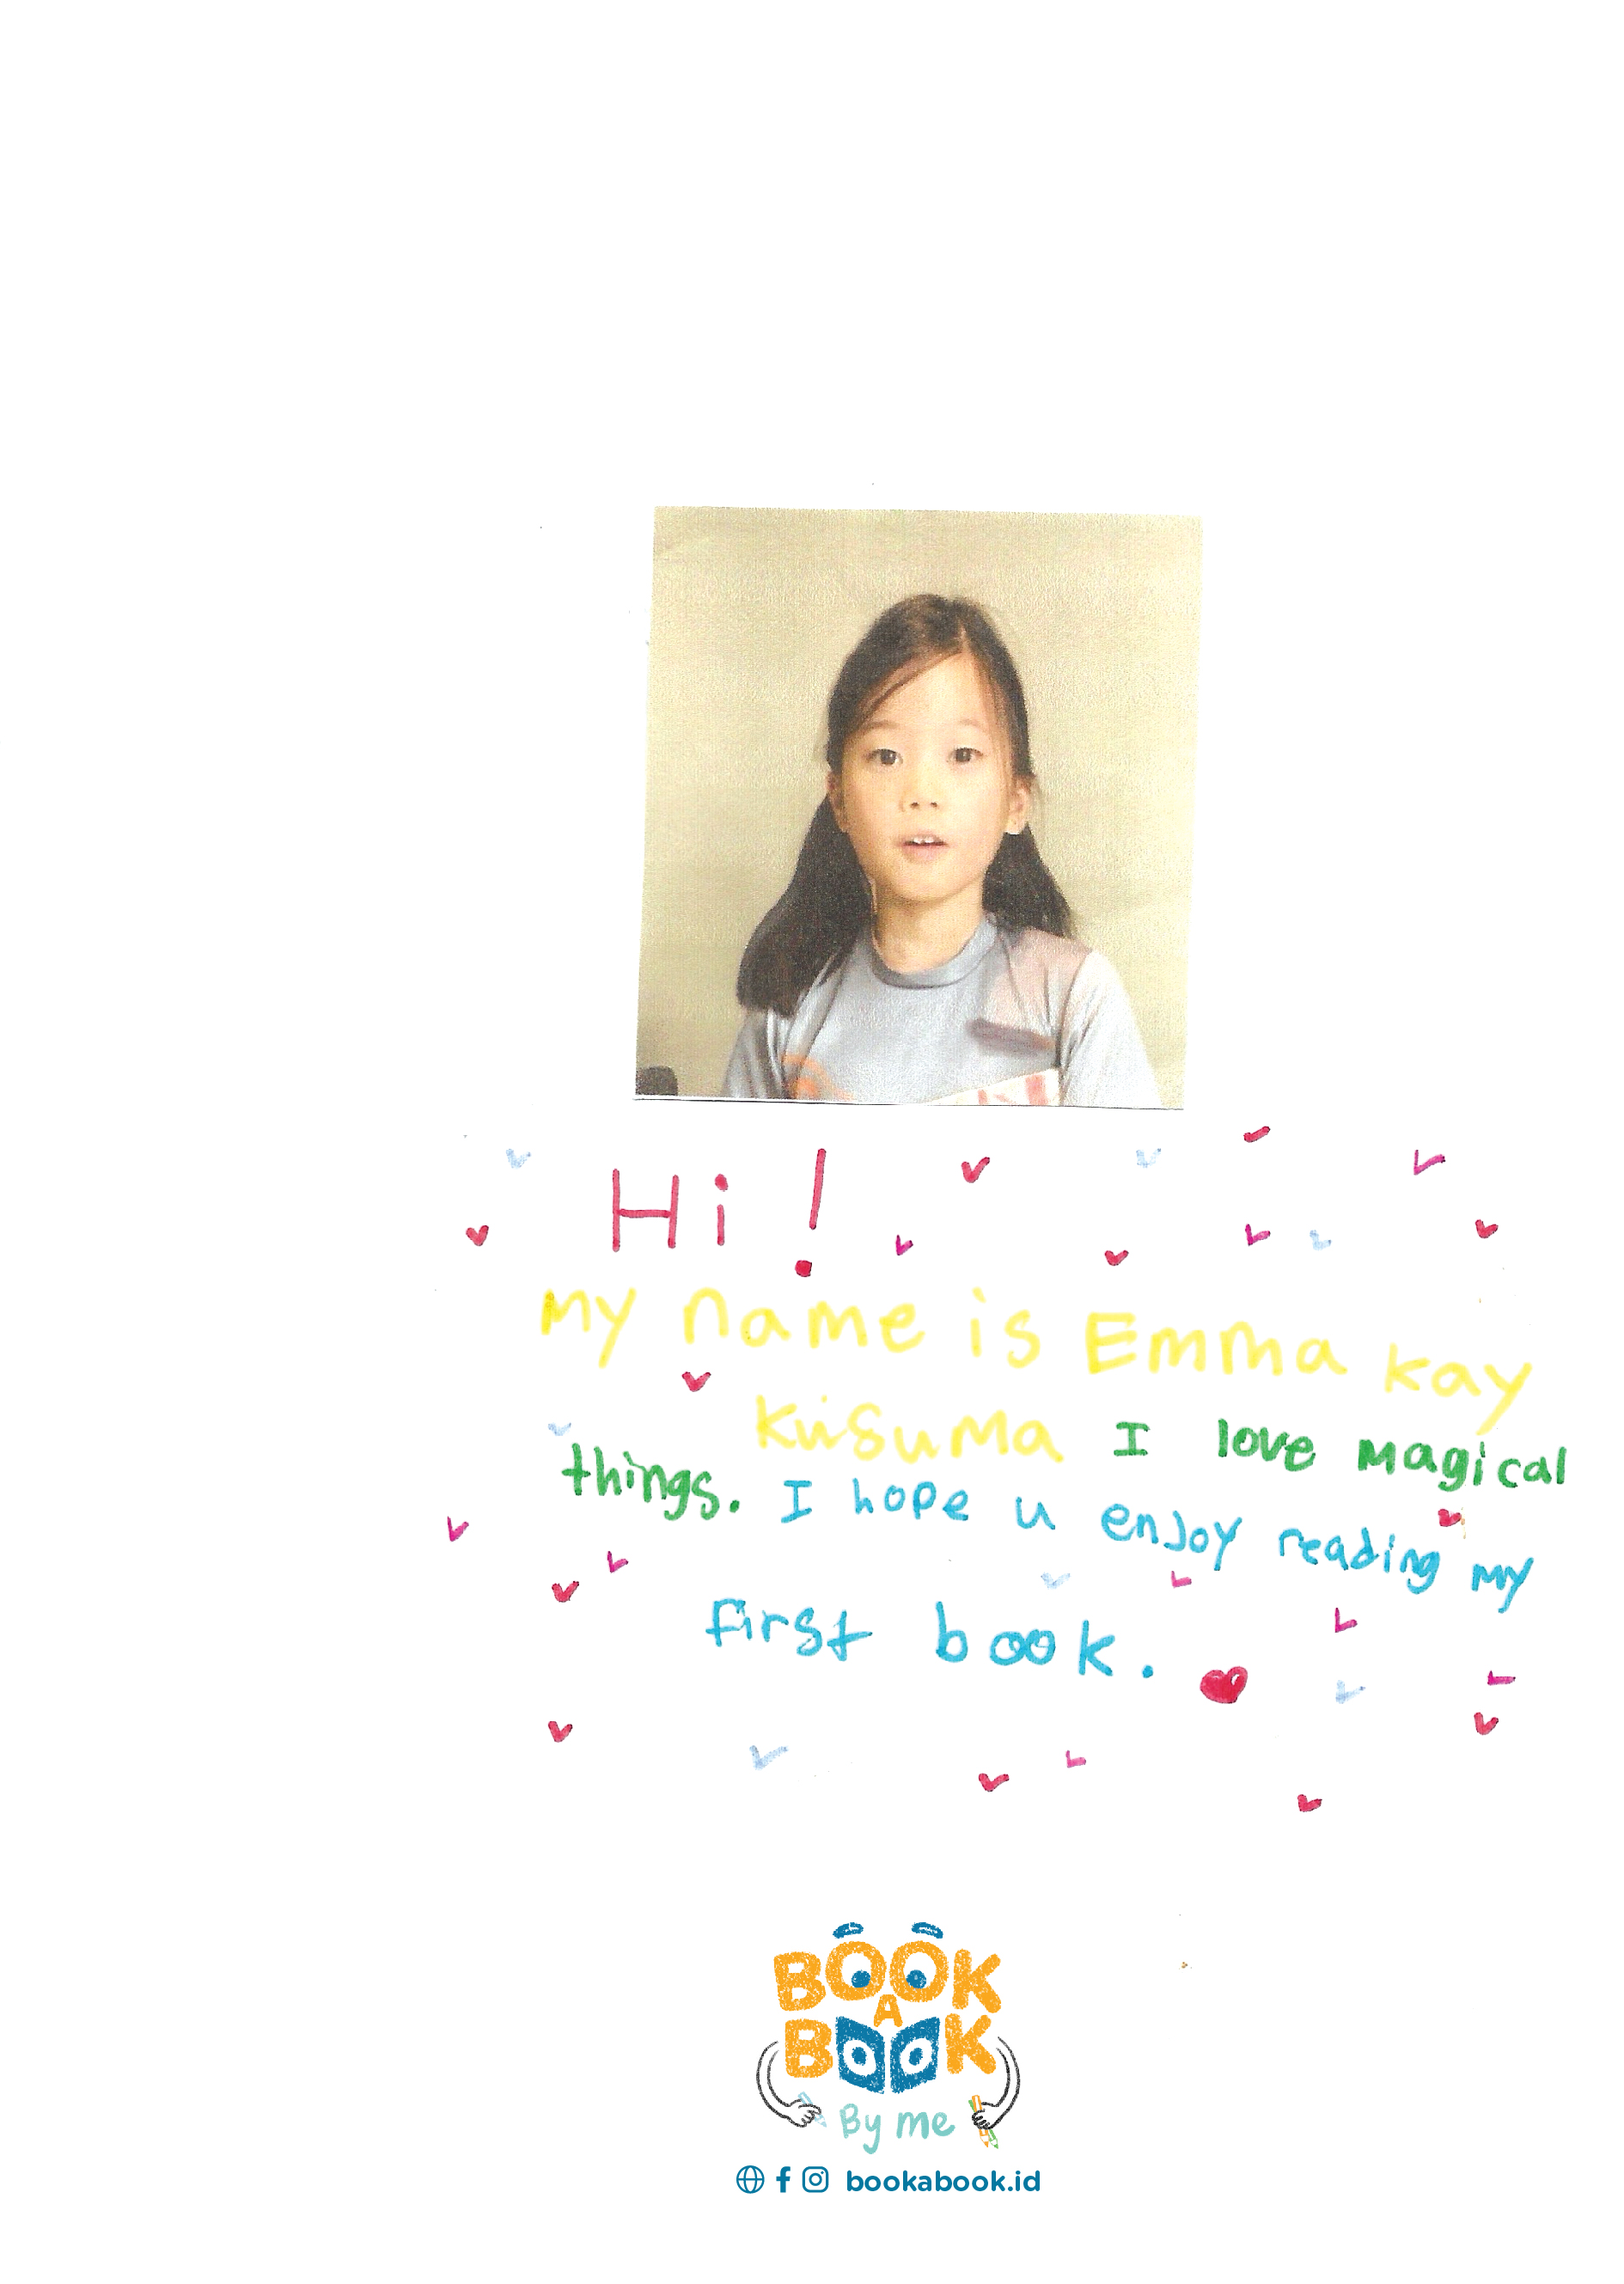 Hi!
My name is Emma kay
Kusuma I love magical
things. I hope u enjoy reading my
first book.
BOOK
A
BOOK
By me
bookabook.id